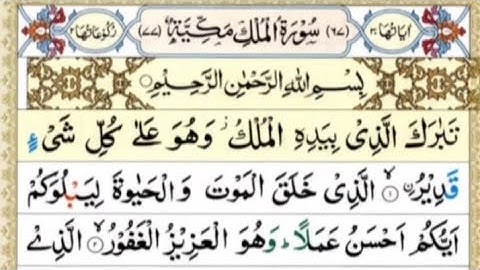 اٰيَاتُهَا ٣٠ (٦٧) سُوْرَةُ الْمُلْكِ مَكِّيَّةٌ (٧٧) رُكُوْعَاتُهَا ٢
بِسْمِ اللّٰهِ الرَّحْمٰنِ الرَّحِيْمِ
تَبٰرَكَ الَّذِىْ بِيَدِهِ الْمُلْكُ ز وَهُوَ عَلٰى كُلِّ شَىْءٍ
قَدِيْرُ نِ ۙ﴿۱﴾ الَّذِىْ خَلَقَ الْمَوْتَ وَ الْحَيٰوةَ لِيَبْلُوَكُمْ
اَيُّكُمْ اَحْسَنُ عَمَلًا ؕ وَهُوَ الْعَزِيْزُ الْغَفُوْرُ ۙ﴿۲﴾ الَّذِىْ